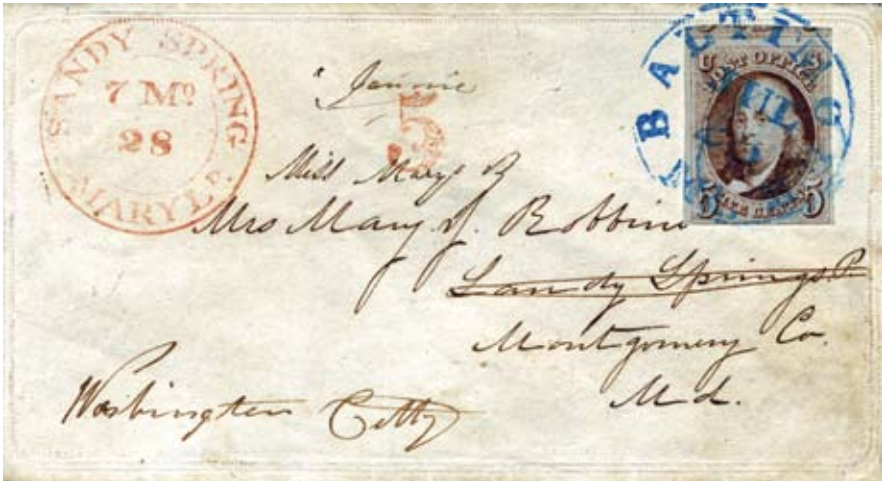 SANDY SPRING
7 Mo
28
MARYLD.
Jonnie
5
BALTIMO
JUL
U S
POST OFFICE
5 FIVE CENTS 5
Miss Mary R
Mrs Mary J. Robbins
Sandy Springs P.
Montgomery Co.
Md.
Washington Citty